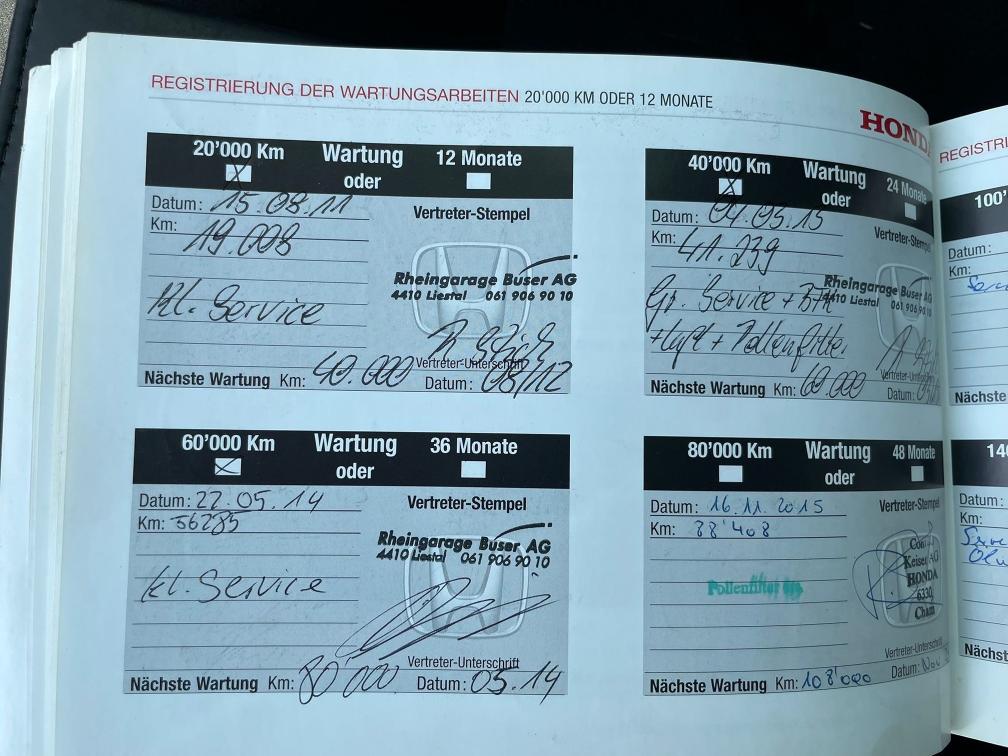 REGISTRIERUNG DER WARTUNGSARBEITEN 20'000 KM ODER 12 MONATE
HONDA
20'000 Km Wartung oder 12 Monate
Datum: 15.08.11
Km: 19.008
Vertreter-Stempel
Rheingarage Buser AG
4410 Liestal 061 906 90 10
Kl. Service
Vertreter-Unterschrift
Nächste Wartung Km: 40.000 Datum: 08/12
40'000 Km Wartung oder 24 Monate
Datum: 04.03.13
Km: 41.239
Vertreter-Stempel
Rheingarage Buser AG
4410 Liestal 061 906 90 10
Gr. Service +
+ Luft + Pollenfilter
Nächste Wartung Km: 60.000 Datum:
60'000 Km Wartung oder 36 Monate
Datum: 22.05.14
Km: 56285
Vertreter-Stempel
Rheingarage Buser AG
4410 Liestal 061 906 90 10
kl. Service
Vertreter-Unterschrift
Nächste Wartung Km: 80'000 Datum: 05.14
80'000 Km Wartung oder 48 Monate
Datum: 16.11.2015
Km: 88'408
Vertreter-Stempel
Pollenfilter
Keiser AG
HONDA
6330
Cham
Vertreter-Unterschrift
Nächste Wartung Km: 108'000 Datum:
REGISTRI
100'
Datum:
Km:
Nächste
140
Datum:
Km:
Nächst